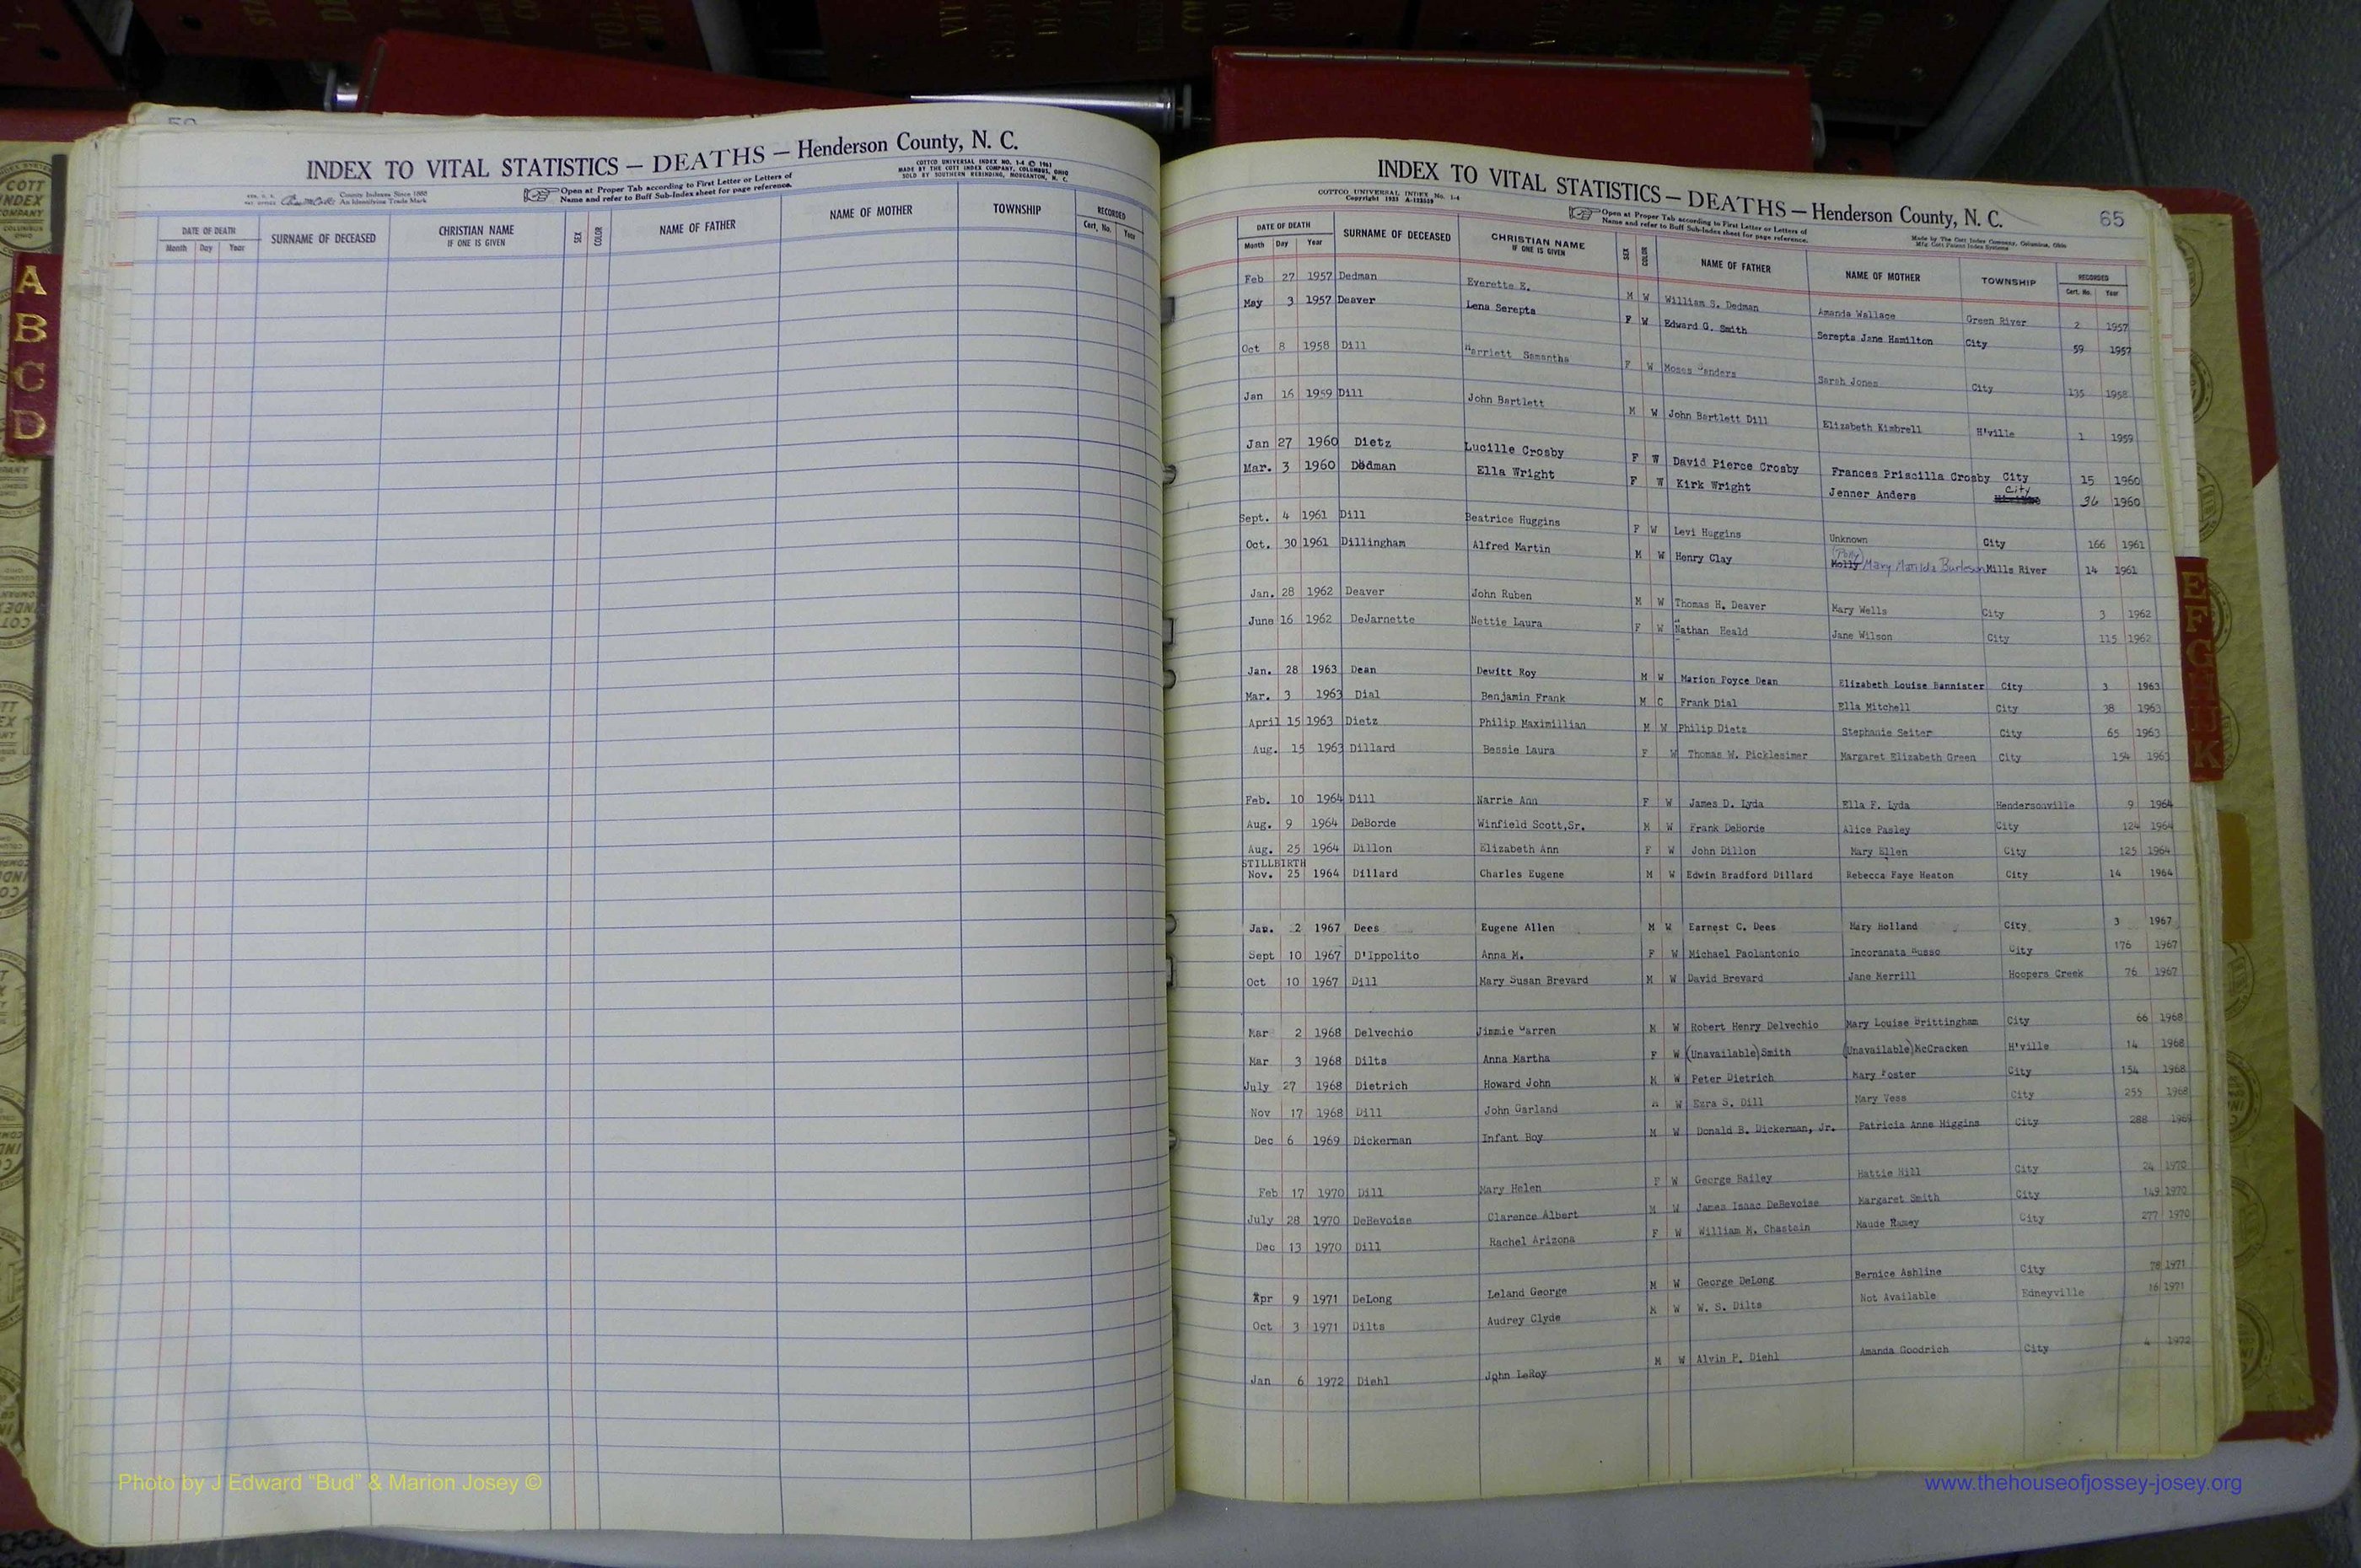 INDEX TO VITAL STATISTICS — DEATHS — Henderson County, N. C.
COTTCO UNIVERSAL INDEX NO. 1-4 © 1961
MADE BY THE COTT INDEX COMPANY, COLUMBUS, OHIO
SOLD BY SOUTHERN REBINDING, MORGANTON, N. C.
County Indexes Since 1888
An Identifying Trade Mark
Open at Proper Tab according to First Letter or Letters of
Name and refer to Buff Sub-Index sheet for page reference.
DATE OF DEATH SURNAME OF DECEASED CHRISTIAN NAME IF ONE IS GIVEN SEX COLOR NAME OF FATHER NAME OF MOTHER TOWNSHIP RECORDED
Month Day Year Cert. No. Year
A
B
C
D
INDEX TO VITAL STATISTICS — DEATHS — Henderson County, N. C.
65
COTTCO UNIVERSAL INDEX No. 1-4
Copyright 1935 A-123519
Open at Proper Tab according to First Letter or Letters of
Name and refer to Buff Sub-Index sheet for page reference.
Made by The Cott Index Company, Columbus, Ohio
Mfg Cott Patent Index Systems
DATE OF DEATH SURNAME OF DECEASED CHRISTIAN NAME IF ONE IS GIVEN SEX COLOR NAME OF FATHER NAME OF MOTHER TOWNSHIP RECORDED
Month Day Year Cert. No. Year
Feb 27 1957 Dedman Everette E. M W William S. Dedman Amanda Wallace Green River 2 1957
May 3 1957 Deaver Lena Serepta F W Edward G. Smith Serepta Jane Hamilton City 59 1957
Oct 8 1958 Dill Harriett Samantha F W Moses Sanders Sarah Jones City 135 1958
Jan 16 1959 Dill John Bartlett M W John Bartlett Dill Elizabeth Kimbrell H'ville 1 1959
Jan 27 1960 Dietz Lucille Crosby F W David Pierce Crosby Frances Priscilla Crosby City 15 1960
Mar. 3 1960 Dedman Ella Wright F W Kirk Wright Jenner Anders City 36 1960
Sept. 4 1961 Dill Beatrice Huggins F W Levi Huggins Unknown City 166 1961
Oct. 30 1961 Dillingham Alfred Martin M W Henry Clay Molly (Polly) Mary Matilda Burleson Mills River 14 1961
Jan. 28 1962 Deaver John Ruben M W Thomas H. Deaver Mary Wells City 3 1962
June 16 1962 DeJarnette Nettie Laura F W Nathan Heald Jane Wilson City 115 1962
Jan. 28 1963 Dean Dewitt Roy M W Marion Poyce Dean Elizabeth Louise Bannister City 3 1963
Mar. 3 1963 Dial Benjamin Frank M C Frank Dial Ella Mitchell City 38 1963
April 15 1963 Dietz Philip Maximillian M W Philip Dietz Stephanie Seiter City 65 1963
Aug. 15 1963 Dillard Bessie Laura F W Thomas W. Picklesimer Margaret Elizabeth Green City 154 1963
Feb. 10 1964 Dill Narrie Ann F W James D. Lyda Ella F. Lyda Hendersonville 9 1964
Aug. 9 1964 DeBorde Winfield Scott,Sr. M W Frank DeBorde Alice Pasley City 124 1964
Aug. 25 1964 Dillon Elizabeth Ann F W John Dillon Mary Ellen City 125 1964
STILLBIRTH
Nov. 25 1964 Dillard Charles Eugene M W Edwin Bradford Dillard Rebecca Faye Heaton City 14 1964
Jan. 2 1967 Dees Eugene Allen M W Earnest C. Dees Mary Holland City 3 1967
Sept 10 1967 D'Ippolito Anna M. F W Michael Paolantonio Incoranata Russo City 176 1967
Oct 10 1967 Dill Mary Susan Brevard M W David Brevard Jane Merrill Hoopers Creek 76 1967
Mar 2 1968 Delvechio Jimmie Warren M W Robert Henry Delvechio Mary Louise Brittingham City 66 1968
Mar 3 1968 Dilts Anna Martha F W (Unavailable)Smith (Unavailable)McCracken H'ville 14 1968
July 27 1968 Dietrich Howard John M W Peter Dietrich Mary Foster City 154 1968
Nov 17 1968 Dill John Garland M W Ezra S. Dill Mary Vess City 255 1968
Dec 6 1969 Dickerman Infant Boy M W Donald B. Dickerman, Jr. Patricia Anne Higgins City 288 1969
Feb 17 1970 Dill Mary Helen F W George Bailey Hattie Hill City 24 1970
July 28 1970 DeBevoise Clarence Albert M W James Isaac DeBevoise Margaret Smith City 149 1970
Dec 13 1970 Dill Rachel Arizona F W William M. Chastain Maude Ramey City 277 1970
Apr 9 1971 DeLong Leland George M W George DeLong Bernice Ashline City 78 1971
Oct 3 1971 Dilts Audrey Clyde M W W. S. Dilts Not Available Edneyville 16 1971
Jan 6 1972 Diehl John LeRoy M W Alvin P. Diehl Amanda Goodrich City 4 1972
E
F
G
K
Photo by J Edward “Bud” & Marion Josey ©
www.thehouseofjossey-josey.org